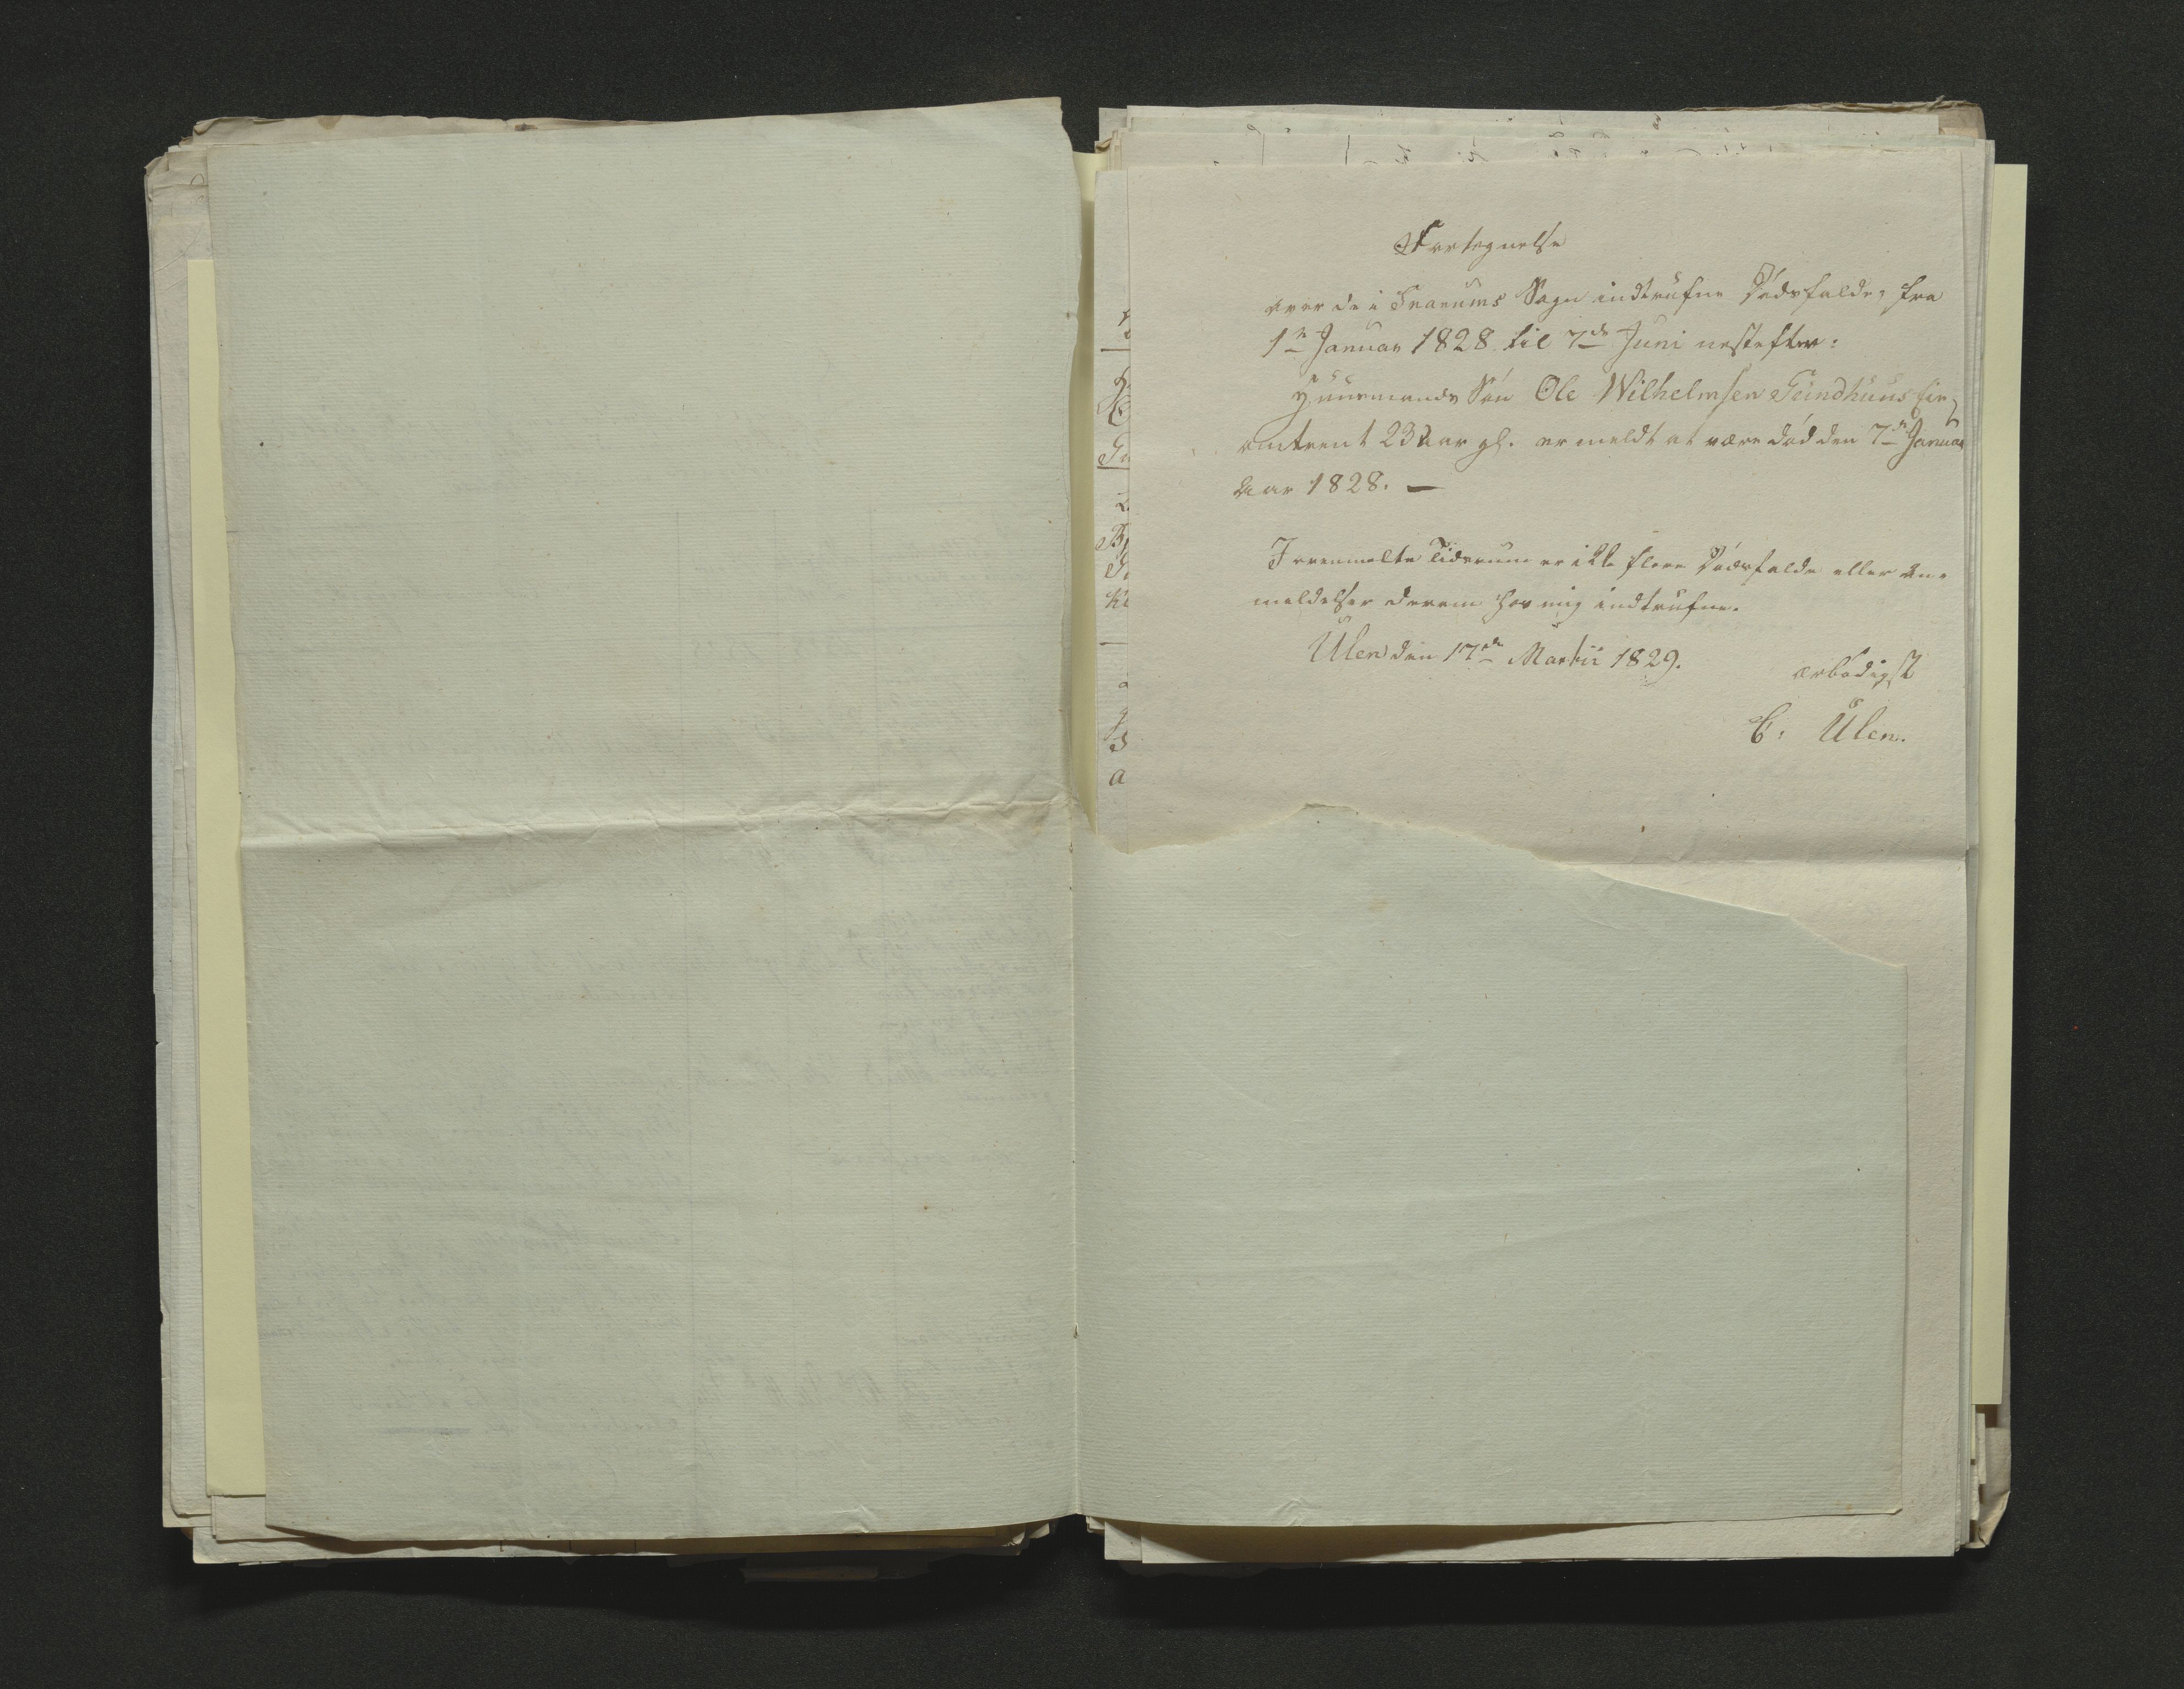 Fortegnelse
over de i Snarums Sogn indtrufne Dødsfalde, fra
1te Januar 1828 til 7de Juni nestefter:
Huusmands Søn Ole Wilhelmsen Gundhuus
omtrent 23 Aar gl. er meldt at være død den 7de Januar
Aar 1828. —
I ovenmelte Tidsrum er ikke flere Dødsfalde eller An-
meldelser derom hos mig indtrufne.
Ulen den 17de Martii 1829.
ærbødigst
C. Ulen.